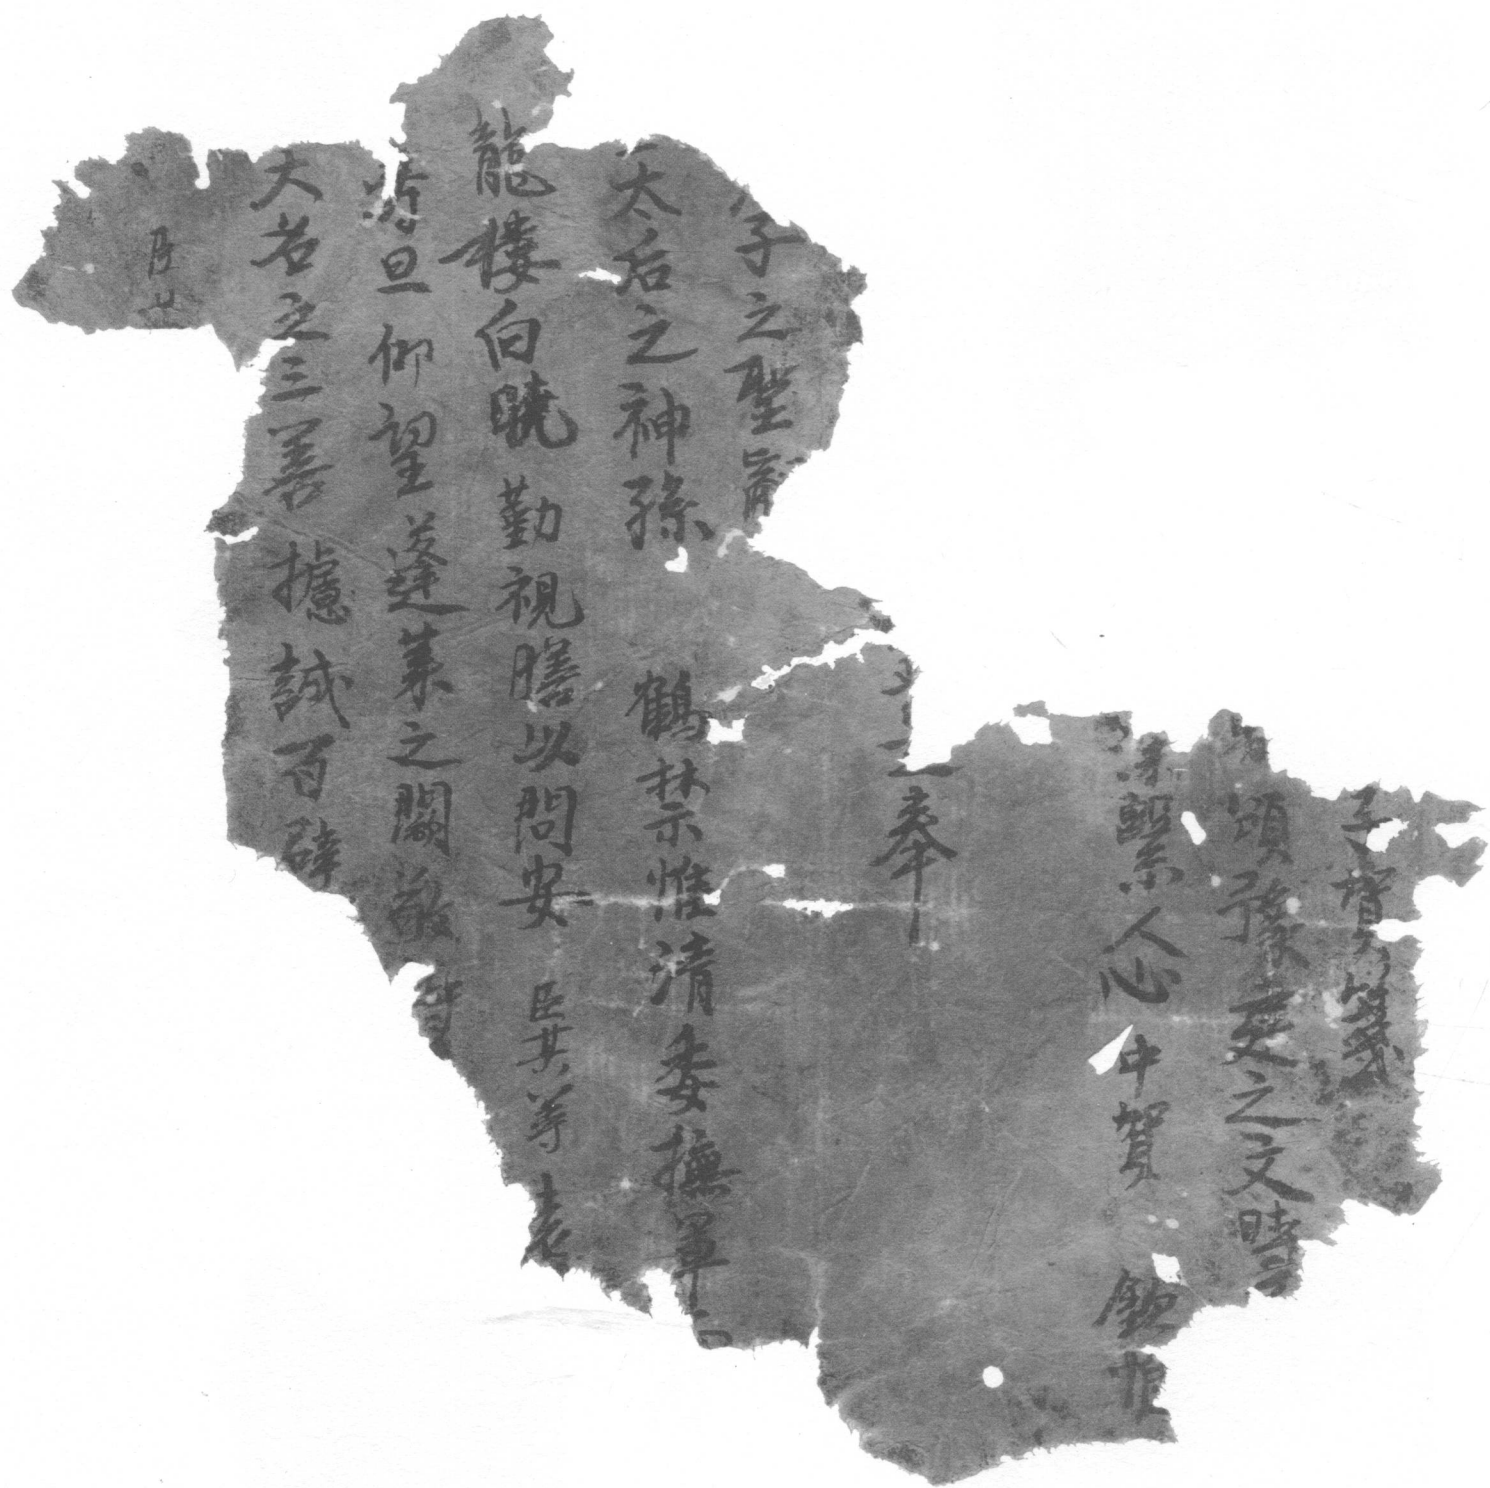 子賀箋
頌豫更之文時
緊人心 中賀 欽惟
奉
子之聖
太后之神孫 鶴禁惟清委撫軍
龍樓向曉勤視膳以問安 臣某等 表
旦仰望蓬萊之闕敬
大君之三善攄誠百辟
臣某